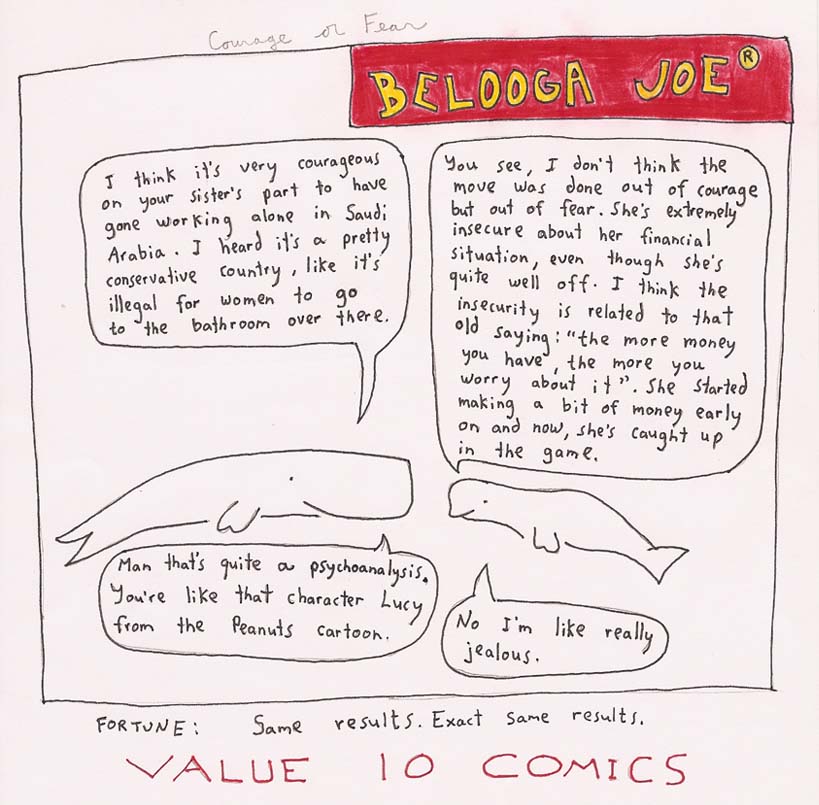 Courage or Fear
BELOOGA JOE®
I think it's very courageous
on your sister's part to have
gone working alone in Saudi
Arabia. I heard it's a pretty
conservative country, like it's
illegal for women to go
to the bathroom over there.
You see, I don't think the
move was done out of courage
but out of fear. She's extremely
insecure about her financial
situation, even though she's
quite well off. I think the
insecurity is related to that
old saying: "the more money
you have, the more you
worry about it". She started
making a bit of money early
on and now, she's caught up
in the game.
Man that's quite a psychoanalysis.
You're like that character Lucy
from the Peanuts cartoon.
No I'm like really
jealous.
FORTUNE: Same results. Exact same results.
VALUE 10 COMICS